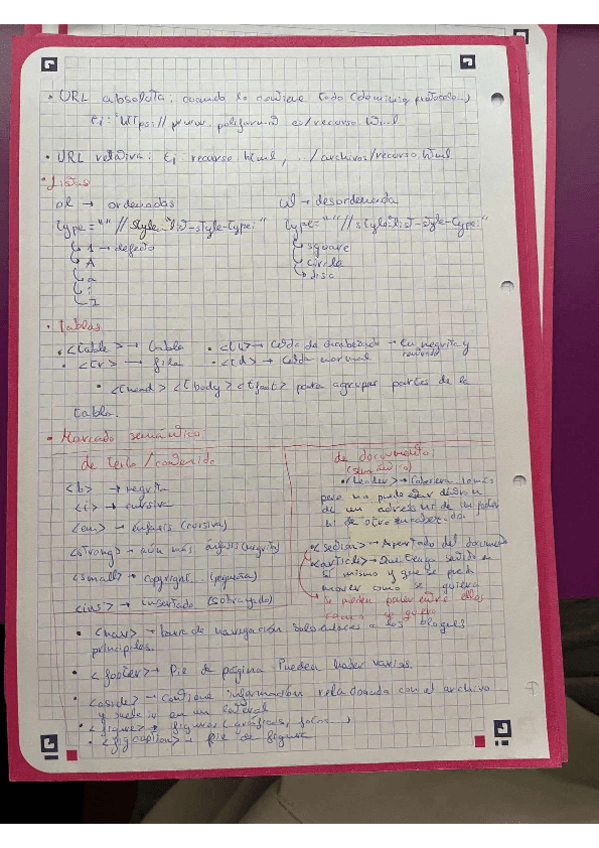 • URL absoluta: cuando lo contiene todo (dominio, protocolo...)
Ej: "https:// /recurso.html
• URL relativa: Ej recurso.html, ../archivos/recurso.html
• Listas
ol → ordenadas
ul → desordenada
type="" // style:"list-style-type:"
type="" // style:list-style-type:"
1 → defecto
A
a
i
I
square
circle
disc
• Tablas
• <table> → tabla
• <th> → Celda de encabezado → en negrita y
• <tr> → fila
• <td> → Celda normal
• <thead> <tbody> <tfoot> para agrupar partes de la
tabla.
• Marcado semántico
de texto/contenido
<b> → negrita
<i> → cursiva
<em> → énfasis (cursiva)
<strong> → aún más énfasis (negrita)
<small> → copyright... (pequeña)
<ins> → insertado (subrayado)
de documento
(semántico)
• <header> → Cabecera
pero no puede estar dentro
de un address ni de un footer
ni de otro encabezado.
• <section> → Apartado del documento
<article> → Que tenga sentido en
sí mismo y que se pueda
mover como se quiera
Se pueden poner entre ellos
como se quiera
• <nav> → barra de navegación Solo enlaces a los bloques
principales.
• <footer> → Pie de página. Pueden haber varios.
• <aside> → Contiene información relacionada con el archivo
y suele ir en un lateral
• <figure> → figuras (gráficos, fotos...)
• <figcaption> → pie de figura